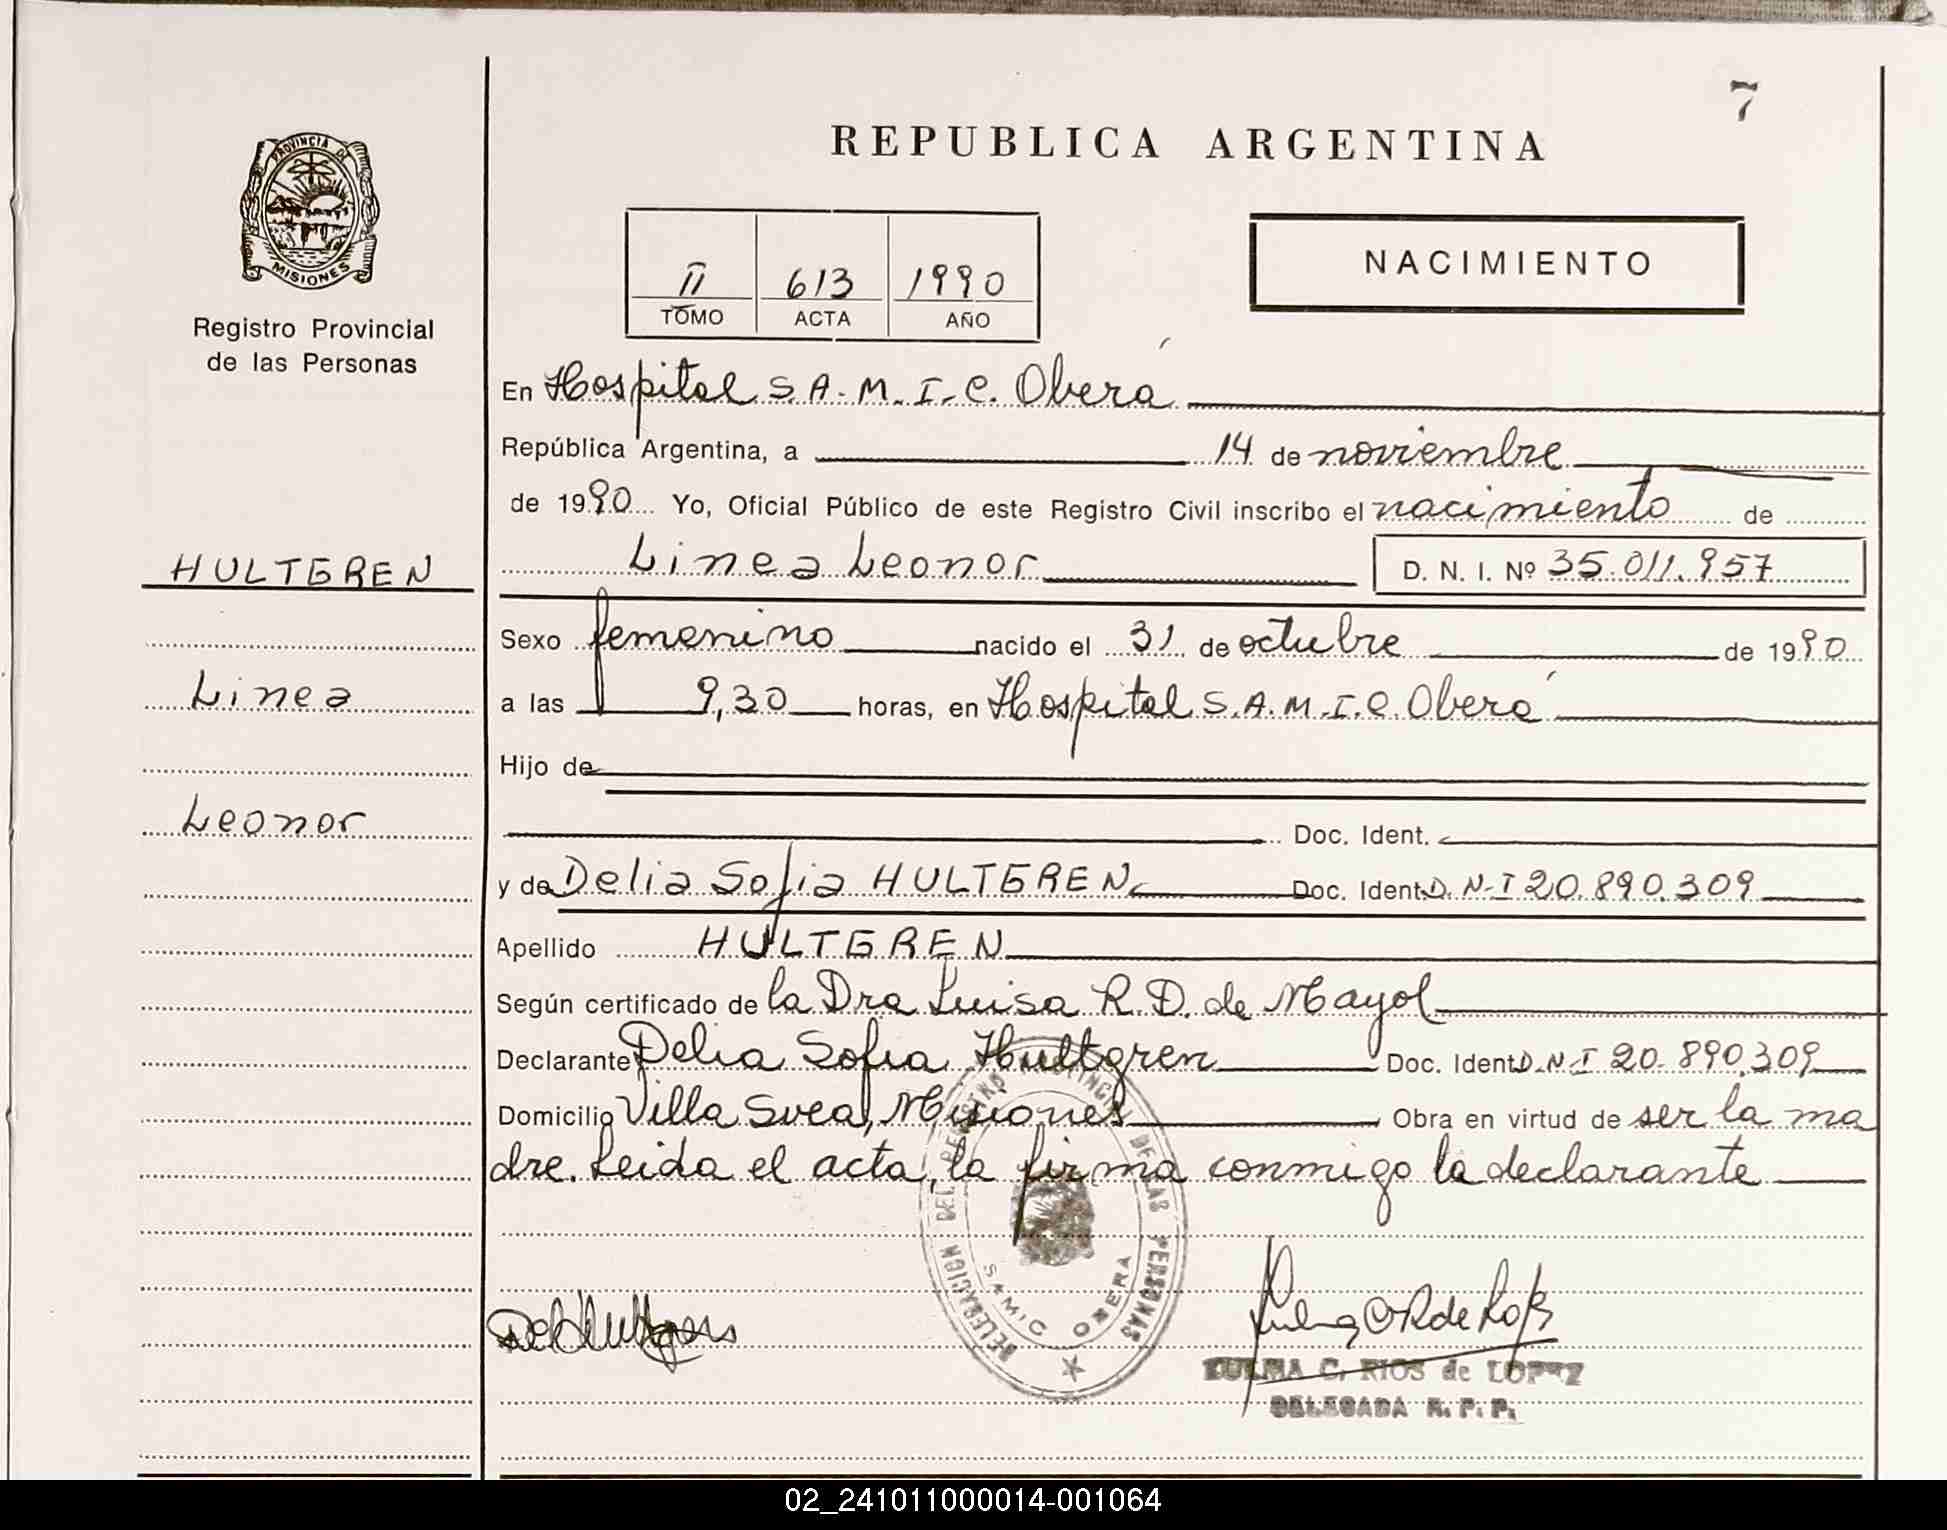 7
REPUBLICA ARGENTINA
PROVINCIA DE
MISIONES
Registro Provincial
de las Personas
II 613 1990
TOMO ACTA AÑO
NACIMIENTO
En Hospital S.A.M.I.C. Oberá
República Argentina, a 14 de noviembre
de 1990 Yo, Oficial Público de este Registro Civil inscribo el nacimiento de
Linea Leonor D. N. I. Nº 35.011.957
HULTGREN
Linea
Leonor
Sexo femenino nacido el 31 de octubre de 1990
a las 9,30 horas, en Hospital S.A.M.I.C. Oberá
Hijo de
Doc. Ident.
y de Delia Sofia HULTGREN Doc. Ident. D.N.I 20.890.309
Apellido HULTGREN
Según certificado de la Dra Luisa R.D. de Mayol
Declarante Delia Sofia Hultgren Doc. Ident. D.N.I 20.890.309
Domicilio Villa Svea, Misiones Obra en virtud de ser la ma
dre. Leida el acta, la firma conmigo la declarante
DELEGACION DEL REGISTRO PROVINCIAL DE LAS PERSONAS
SAMIC OBERA
ZULMA C. RIOS de LOPEZ
DELEGADA R. P. P.
02_241011000014-001064